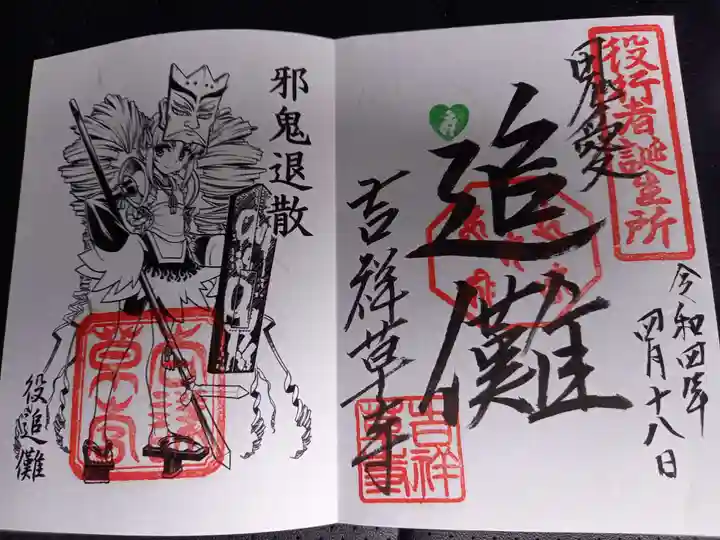 役行者誕生所
奉拝
追儺
吉祥草寺
令和四年
四月十八日
吉祥
草寺
邪鬼退散
役追儺
吉祥
草寺